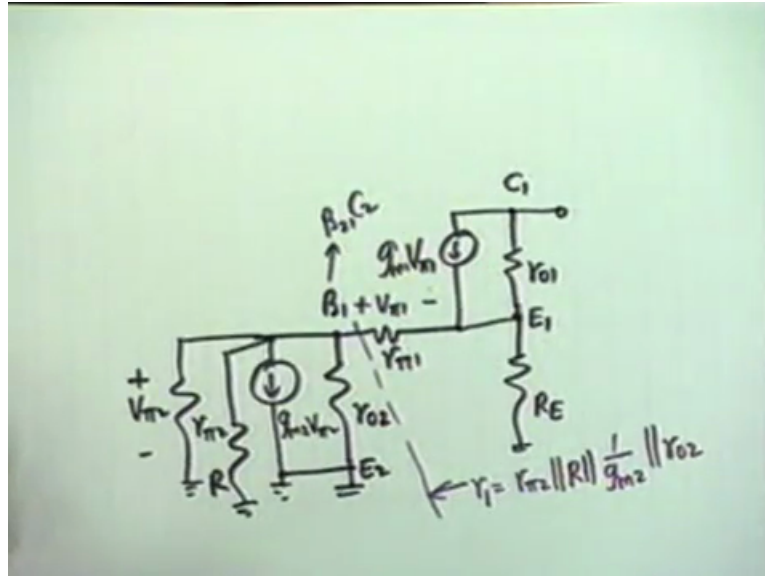 C1
B2, C2
gm1Vπ1
r01
B1 + Vπ1 -
E1
rπ1
+
Vπ2
-
rπ2
R
gm2Vπ2
r02
E2
RE
r1 = rπ2 || R || 1/gm2 || r02